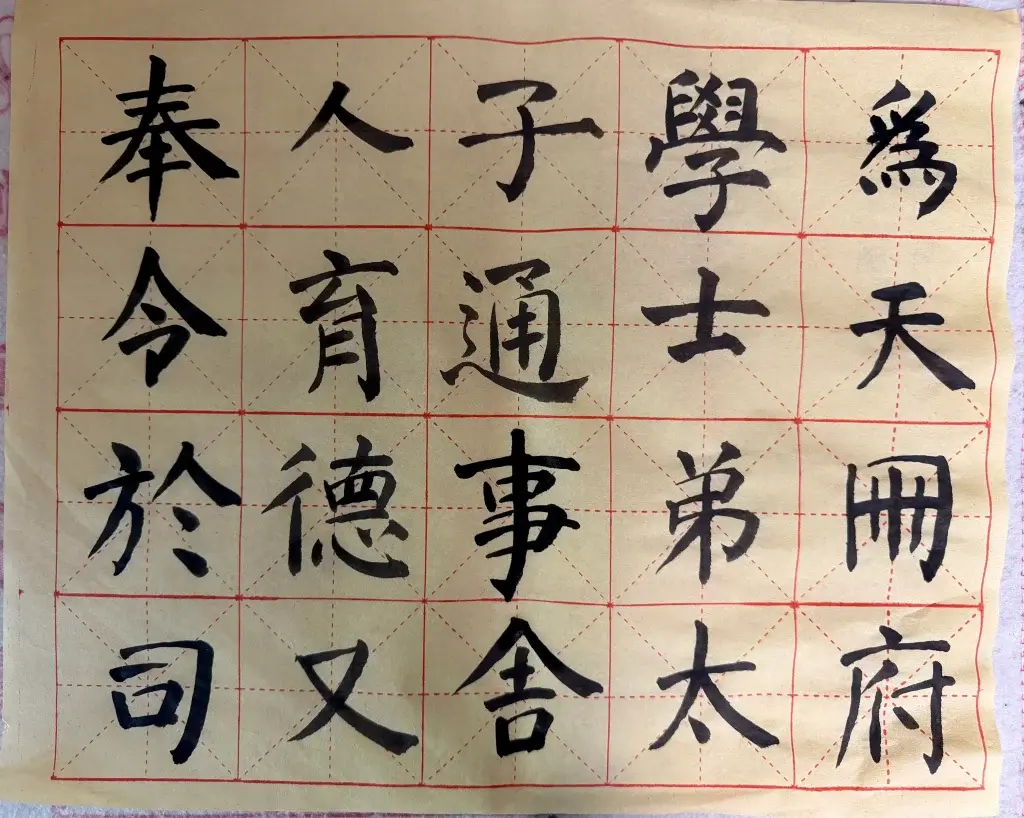 爲天冊府
學士弟太
子通事舍
人育德又
奉令於司